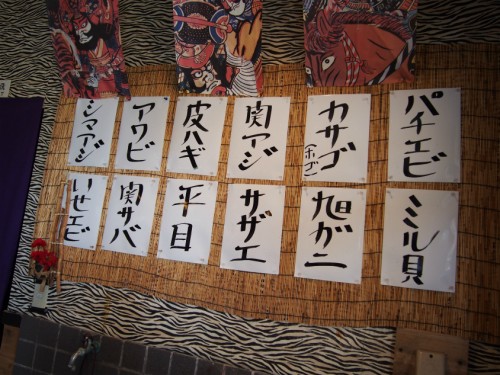 パチエビ
カサゴ
(ホゴ)
関アジ
皮ハギ
アワビ
シマアジ
ミル貝
旭ガニ
サザエ
平目
関サバ
いせエビ